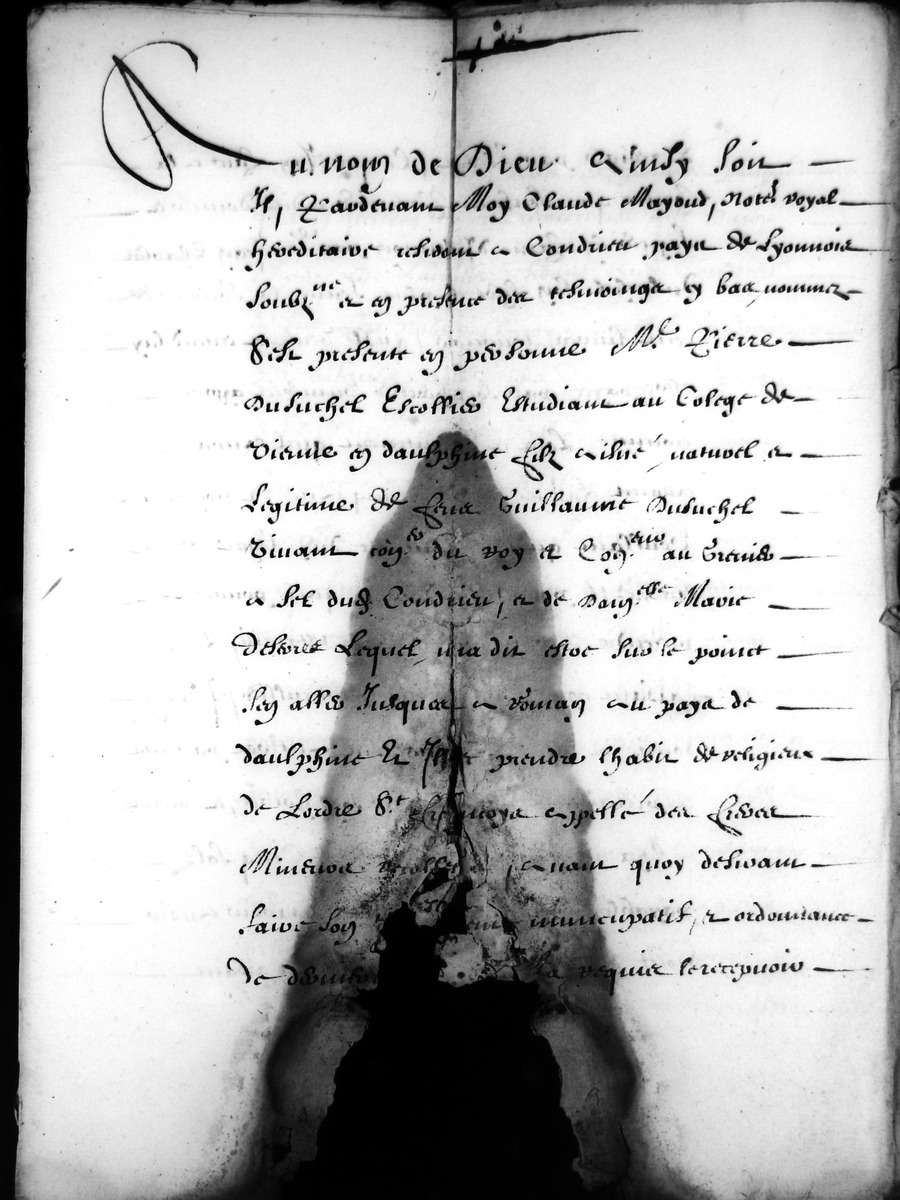 Au nom de Dieu Ainsy soit
Il, Pardevant Moy Claude Mayoud, Notre royal
hereditaire residant a Condrieu paya de Lyonnois
soubzne et en presence des tesmoings cy bas nommez
Sest presente en personne Me Pierre
Dusuchel Escollier Estudiant au Colege de
Vienne en dauphine filz aisné, naturel et
Legitime de feux Guillaume Dusuchel
Vivant coner du roy et Conerio au Grenier
a sel dud Condrieu, et de Damelle Marie
Lequel, ma dit estre sur le poinct
sen aller Jusques a Romans au pays de
dauphine Et prendre lhabit de religieux
de Lordre St francoys appellé des freres
Mineurs recolletz, avant quoy desirant
faire son nuncupatif, et ordonnance
de derniere ma requier le recepvoir